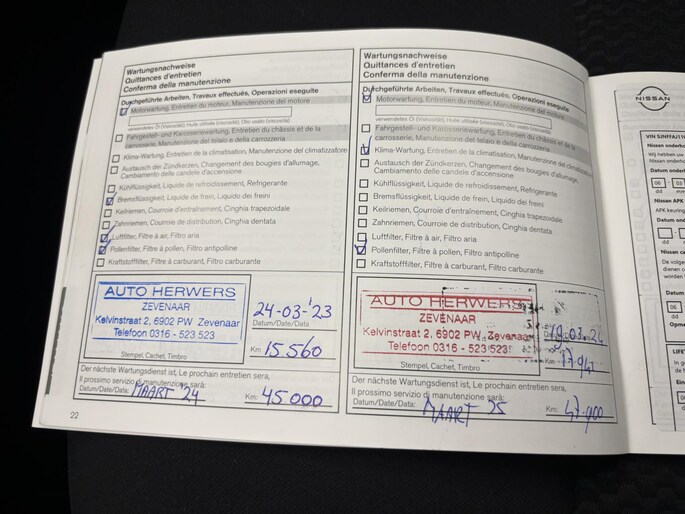 Wartungsnachweise
Quittances d'entretien
Conferma della manutenzione
Durchgeführte Arbeiten, Travaux effectués, Operazioni eseguite
Motorwartung, Entretien du moteur, Manutenzione del motore
verwendetes Öl (Viskosität), Huile utilisée (viscosité), Olio usato (viscosità)
Fahrgestell- und Karosseriewartung, Entretien du châssis et de la
carrosserie, Manutenzione del telaio e della carrozzeria
Klima-Wartung, Entretien de la climatisation, Manutenzione del climatizzatore
Austausch der Zündkerzen, Changement des bougies d'allumage,
Cambiamento delle candele d'accensione
Kühlflüssigkeit, Liquide de refroidissement, Refrigerante
Bremsflüssigkeit, Liquide de frein, Liquido dei freini
Keilriemen, Courroie d'entraînement, Cinghia trapezoidale
Zahnriemen, Courroie de distribution, Cinghia dentata
Luftfilter, Filtre à air, Filtro aria
Pollenfilter, Filtre à pollen, Filtro antipolline
Kraftstofffilter, Filtre à carburant, Filtro carburante
AUTO HERWERS
ZEVENAAR
Kelvinstraat 2, 6902 PW Zevenaar
Telefoon 0316 - 523 523
Stempel, Cachet, Timbro
24-03-'23
Datum/Date/Data
Km 15.560
Der nächste Wartungsdienst ist, Le prochain entretien sera,
Il prossimo servizio di manutenzione sarà:
Datum/Date/Data: MAART 24 Km: 45000
22
Wartungsnachweise
Quittances d'entretien
Conferma della manutenzione
Durchgeführte Arbeiten, Travaux effectués, Operazioni eseguite
Motorwartung, Entretien du moteur, Manutenzione del motore
verwendetes Öl (Viskosität), Huile utilisée (viscosité), Olio usato (viscosità)
Fahrgestell- und Karosseriewartung, Entretien du châssis et de la
carrosserie, Manutenzione del telaio e della carrozzeria
Klima-Wartung, Entretien de la climatisation, Manutenzione del climatizzatore
Austausch der Zündkerzen, Changement des bougies d'allumage,
Cambiamento delle candele d'accensione
Kühlflüssigkeit, Liquide de refroidissement, Refrigerante
Bremsflüssigkeit, Liquide de frein, Liquido dei freini
Keilriemen, Courroie d'entraînement, Cinghia trapezoidale
Zahnriemen, Courroie de distribution, Cinghia dentata
Luftfilter, Filtre à air, Filtro aria
Pollenfilter, Filtre à pollen, Filtro antipolline
Kraftstofffilter, Filtre à carburant, Filtro carburante
AUTO HERWERS
ZEVENAAR
Kelvinstraat 2, 6902 PW Zevenaar
Telefoon 0316 - 523 523
Stempel, Cachet, Timbro
19.03.24
Km 17.941
Der nächste Wartungsdienst ist, Le prochain entretien sera,
Il prossimo servizio di manutenzione sarà:
Datum/Date/Data: MAART 25 Km: 47.900
NISSAN
Wij hebben uw
Nissan onderho
Datum onderho
06
dd
Nissan APK
APK keuring
dd
Nissan car
De volge
dienen o
worden
Datum o
06
dd
Opme
LIFE
In ge